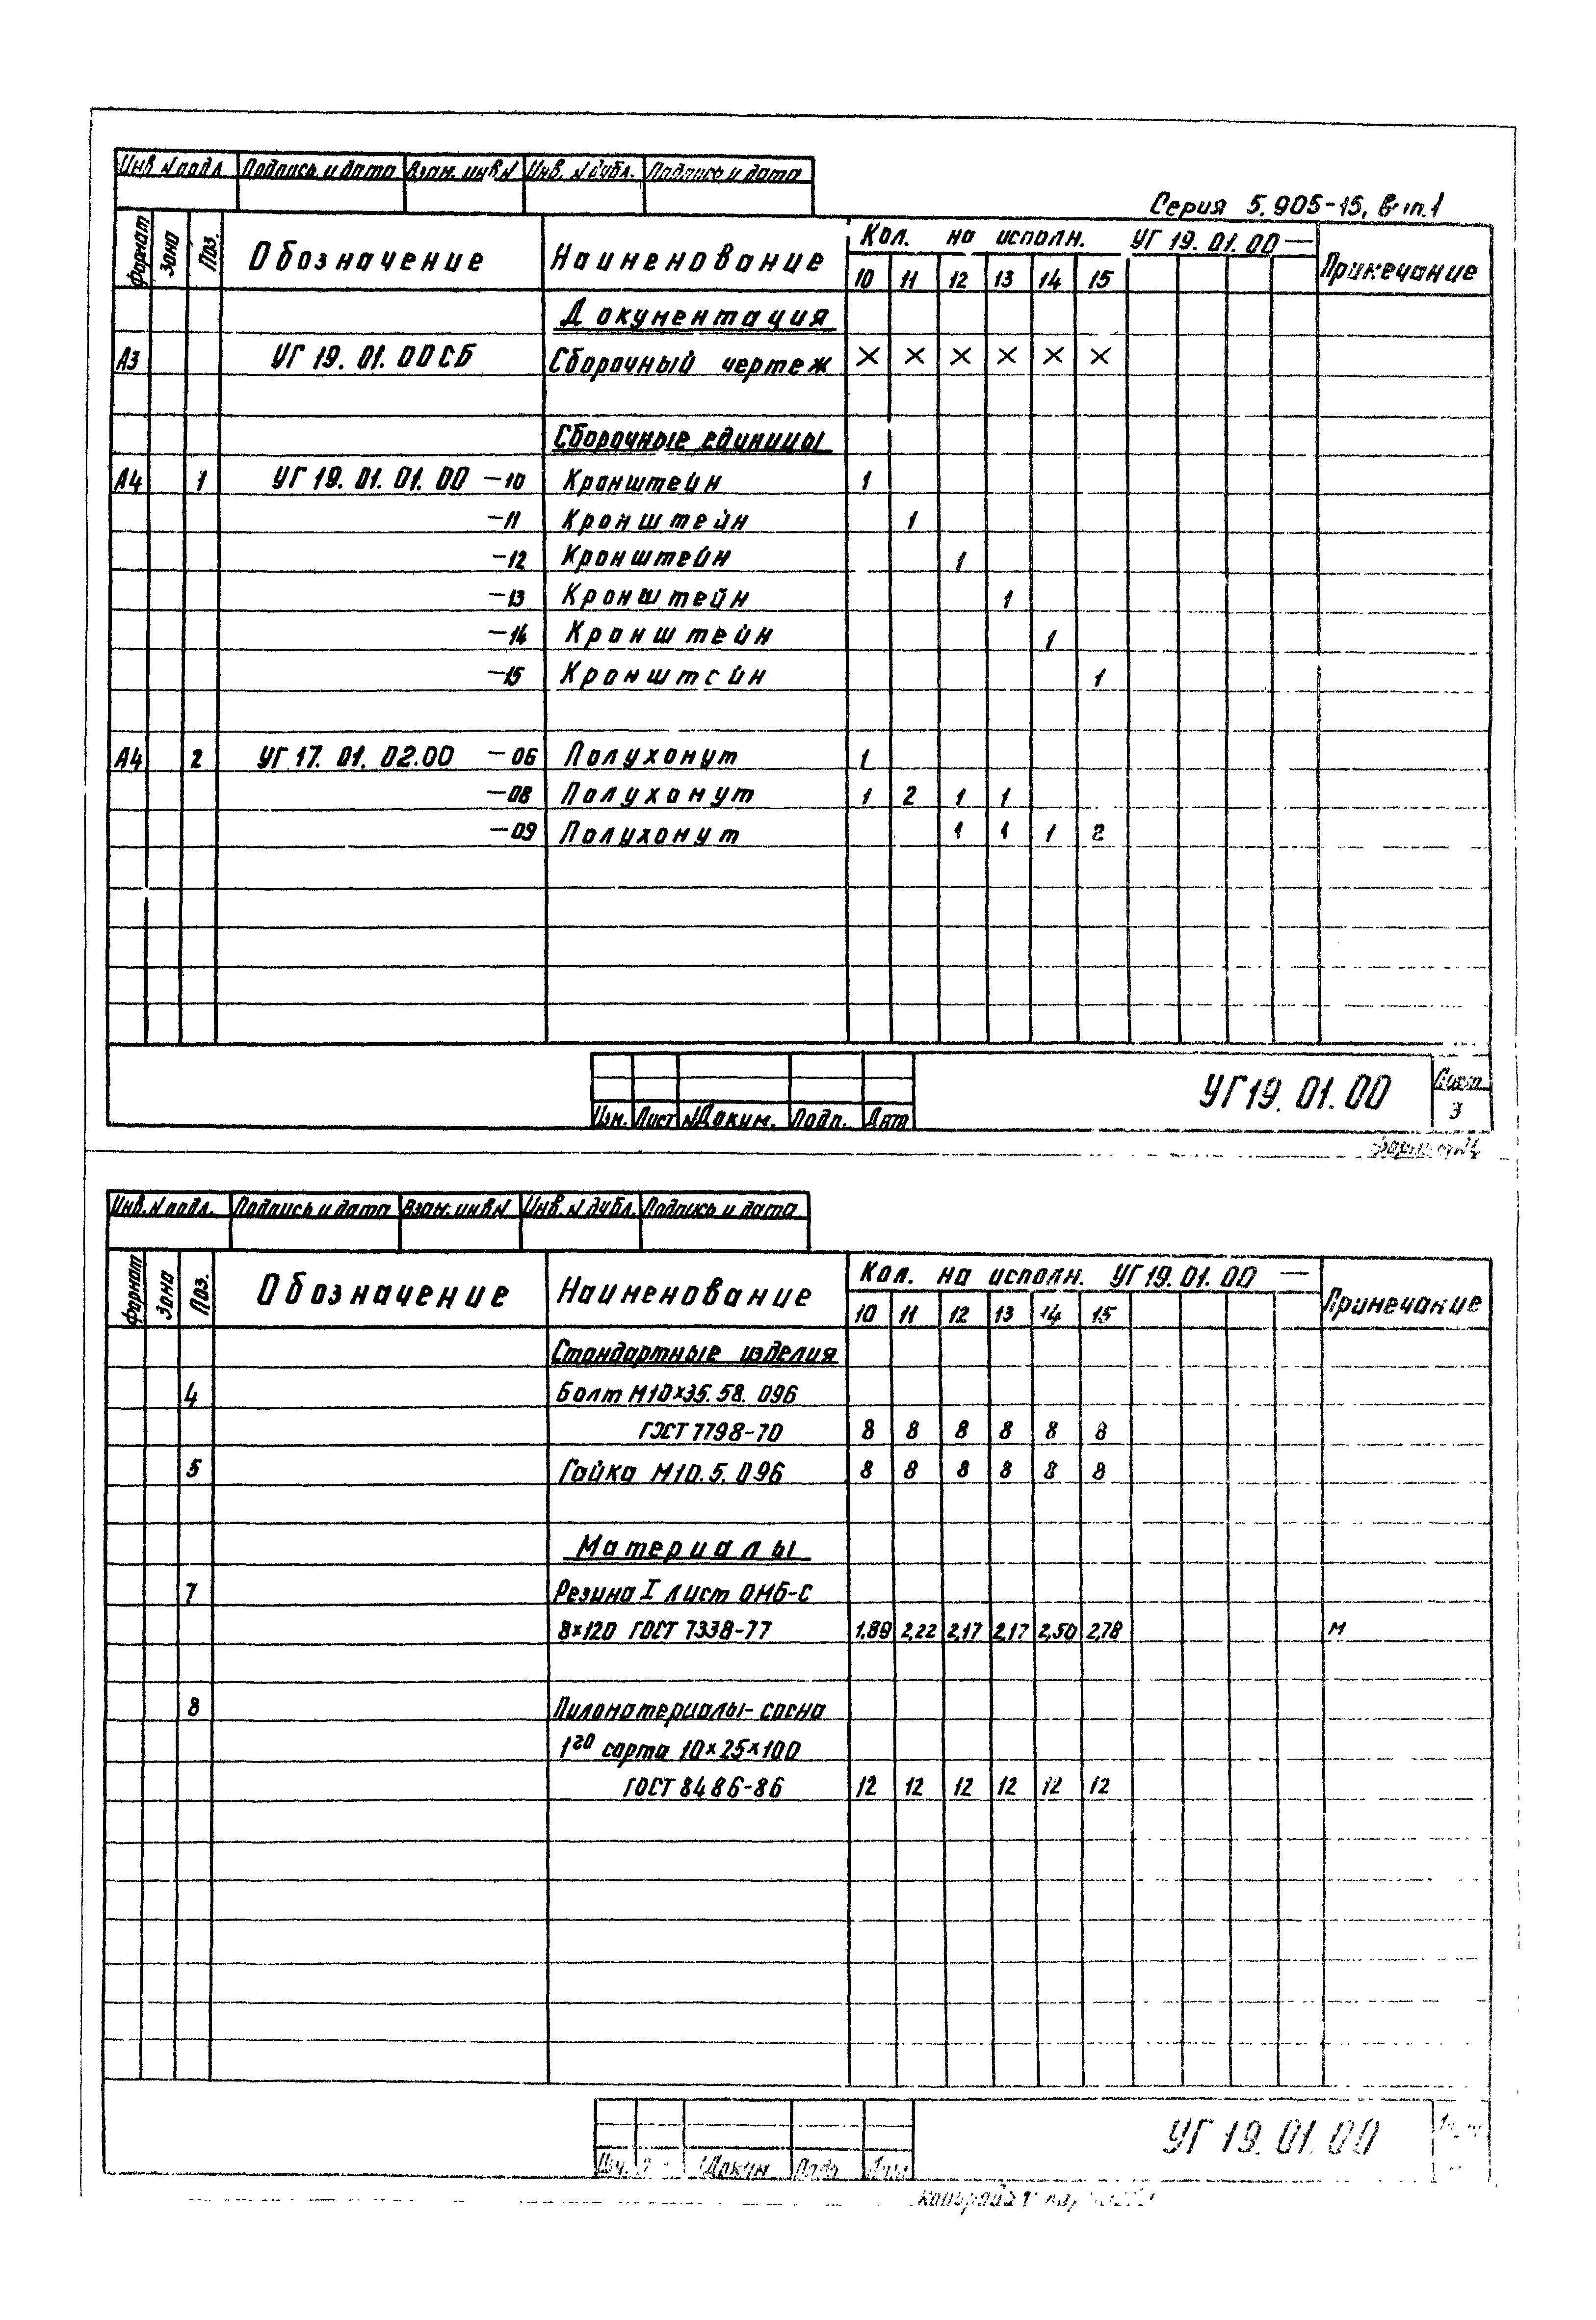 Инв. N подл. Подпись и дата Взам. инв N Инв. N дубл. Подпись и дата
Серия 5.905-15, вып.1
Формат Зона Поз. Обозначение Наименование Кол. на исполн. УГ 19.01.00— Примечание
10 11 12 13 14 15
Документация
А3 УГ 19.01.00СБ Сборочный чертеж × × × × × ×
Сборочные единицы
А4 1 УГ 19.01.01.00 —10 Кронштейн 1
—11 Кронштейн 1
—12 Кронштейн 1
—13 Кронштейн 1
—14 Кронштейн 1
—15 Кронштейн 1
А4 2 УГ 17.01.02.00 —06 Полухомут 1
—08 Полухомут 1 2 1 1
—09 Полухомут 1 1 1 2
УГ19.01.00 Лист
3
Изм. Лист N Докум. Подп. Дата
Формат А4
Инв. N подл. Подпись и дата Взам. инв N Инв. N дубл. Подпись и дата
Формат Зона Поз. Обозначение Наименование Кол. на исполн. УГ19.01.00 — Примечание
10 11 12 13 14 15
Стандартные изделия
4 Болт М10×35.58.096
ГОСТ 7798-70 8 8 8 8 8 8
5 Гайка М10.5.096 8 8 8 8 8 8
Материалы
7 Резина I лист ОМБ-С
8×120 ГОСТ 7338-77 1,89 2,22 2,17 2,17 2,50 2,78 м
8 Пиломатериалы-сосна
1го сорта 10×25×100
ГОСТ 8486-86 12 12 12 12 12 12
УГ 19.01.00
Докум.